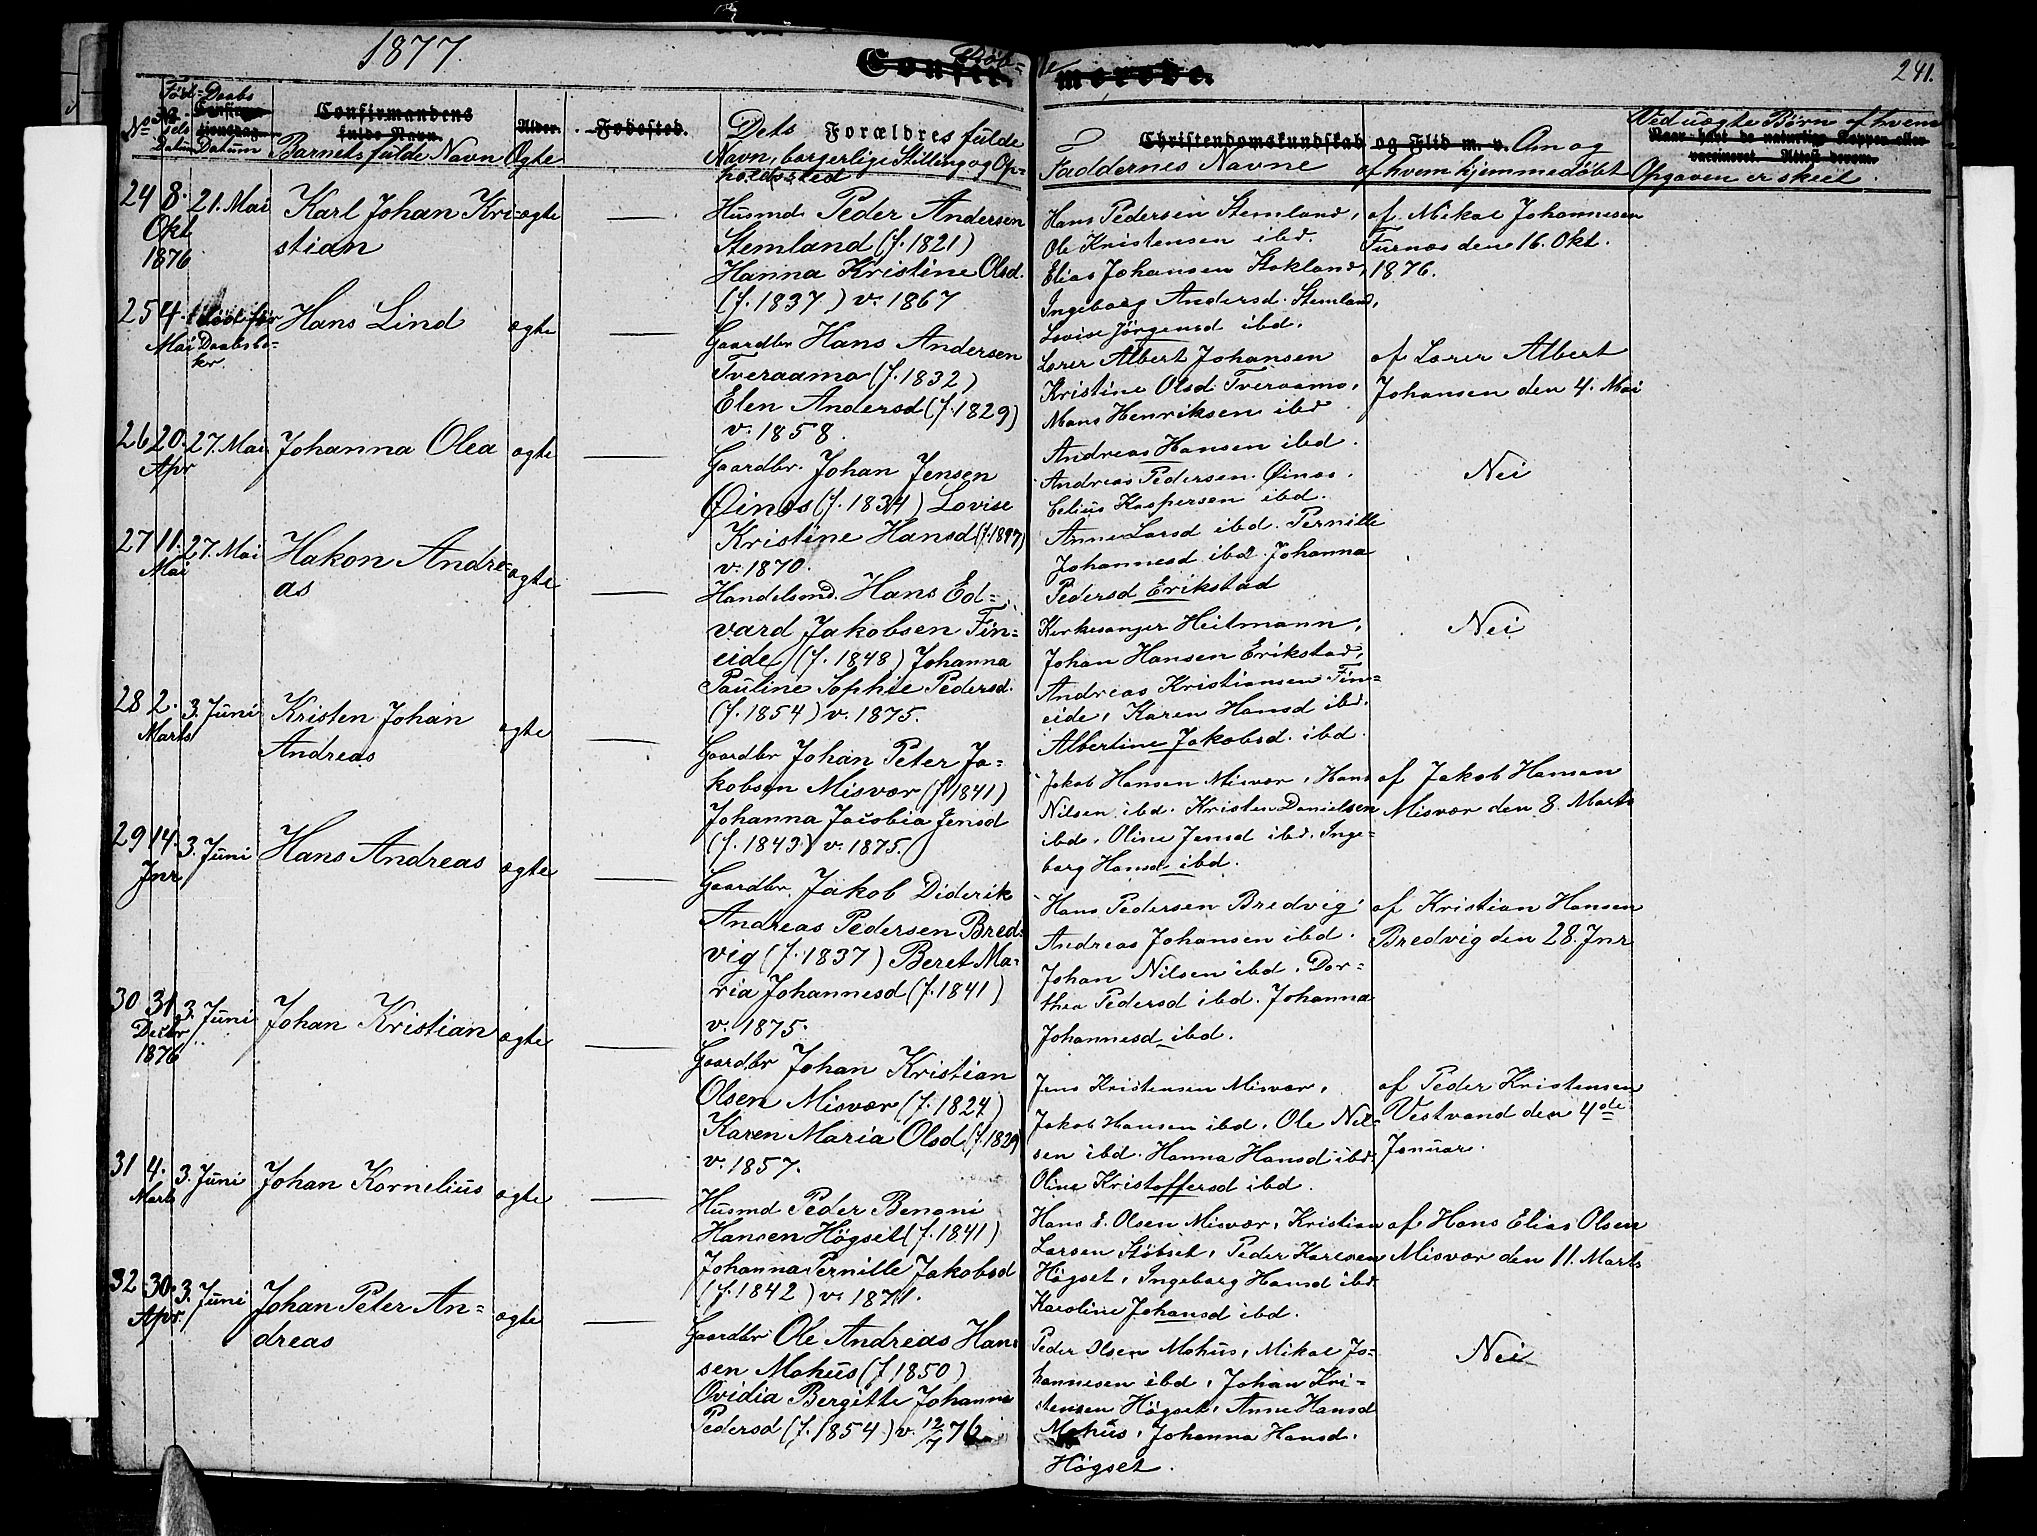 1877.
Døb- te
Confir- merede.
241.
No
Fød-
sels
Datum
Daabs
Datum
Confirmandens
fulde Navn.
Barnets fulde Navn
Alder.
Ægte
Fødested.
Dets Forældres fulde
Navn, borgerlige Stilling og Op-
holdssted
Christendomskundskab og Flid m. v. Om og
Faddernes Navne
af hvem hjemmedøbt
Ved uægte Børn af hvem
Opgaven er skeet.
24 8. Okt 1876
21. Mai
Karl Johan Kri-
stian
ægte
Husmd Peder Andersen
Stemland (f. 1821)
Hanna Kristine Olsd.
(f. 1837) v. 1867
Hans Pedersen Stemland,
Ole Kristensen ibd.
Elias Johansen Stokland,
Ingeborg Andersd. Stemland,
Lovise Jørgensd ibd.
af Mikal Johannesen
Furnæs den 16. Okt.
1876.
25 4. Mai
død før
Daabsbe-
kr.
Hans Lind
ægte
Gaardbr Hans Andersen
Tveraamo (f. 1832)
Elen Andersd (f. 1829)
v. 1858.
Lærer Albert Johansen
Kristine Olsd Tveraamo,
Mons Henriksen ibd
Andreas Hansen ibd.
af Lærer Albert
Johansen den 4. Mai
26 20. Apr
27. Mai
Johanna Olea
ægte
Gaardbr. Johan Jensen
Øinæs (f. 1834) Lovise
Kristine Hansd (f. 1847)
v. 1870.
Andreas Pedersen Øinæs.
Celius Kaspersen ibd.
Anne Larsd ibd. Pernille
Johannesd ibd. Johanna
Pedersd Erikstad
Nei
27 11. Mai
27. Mai
Hakon Andre-
as
ægte
Handelsmd. Hans Ed-
vard Jakobsen Fin-
eide (f. 1848) Johanna
Pauline Sophie Pedersd.
(f. 1854) v. 1875.
Kirkesanger Heitmann,
Johan Hansen Erikstad,
Andreas Kristiansen Fin-
eide, Karen Hansd ibd.
Albertine Jakobsd. ibd.
Nei
28 2. Marts
3. Juni
Kristen Johan
Andreas
ægte
Gaardbr Johan Peter Ja-
kobsen Misvær (f. 1841)
Johanna Jacobia Jensd
(f. 1843) v. 1875.
Jakob Hansen Misvær, Hans
Nilsen ibd. Kristen Danielsen
ibd, Oline Jensd ibd. Inge-
borg Hansd ibd.
af Jakob Hansen
Misvær den 8. Marts
29 14. Jnr
3. Juni
Hans Andreas
ægte
Gaardbr. Jakob Diderik
Andreas Pedersen Bred-
vig (f. 1837) Beret Ma-
ria Johannesd (f. 1841)
v. 1875.
Hans Pedersen Bredvig,
Andreas Johansen ibd.
Johan Nilsen ibd. Dor-
thea Pedersd ibd. Johanna
Johannesd ibd.
af Kristian Hansen
Bredvig den 28. Jnr
30 31. Decbr 1876
3. Juni
Johan Kristian
ægte
Gaardbr Johan Kristian
Olsen Misvær (f. 1824)
Karen Maria Olsd (f. 1829)
v. 1857.
Jens Kristensen Misvær,
Jakob Hansen ibd, Ole Nil-
sen ibd. Hanna Hansd ibd
Oline Kristoffersd ibd.
af Peder Kristensen
Vestvand den 4de
Januar.
31 4. Marts
3. Juni
Johan Kornelius
ægte
Husmd Peder Benoni
Hansen Högset (f. 1841)
Johanna Pernille Jakobsd
(f. 1842) v. 1871.
Hans E. Olsen Misvær, Kristian
Larsen Støbset, Peder Karlsen
Högset, Ingeborg Hansd ibd.
Karoline Johansd ibd.
af Hans Elias Olsen
Misvær den 11. Marts
32 30. Apr.
3. Juni
Johan Peter An-
dreas
ægte
Gaardbr Ole Andreas Han-
sen Mohus (f 1850)
Ovidia Bergitte Johanna
Pedersd (f. 1854) v. 12/7 76.
Peder Olsen Mohus, Mikal Jo-
hannesen ibd, Johan Kri-
stensen Högset, Anne Hansd
Mohus, Johanna Hansd.
Högset.
Nei